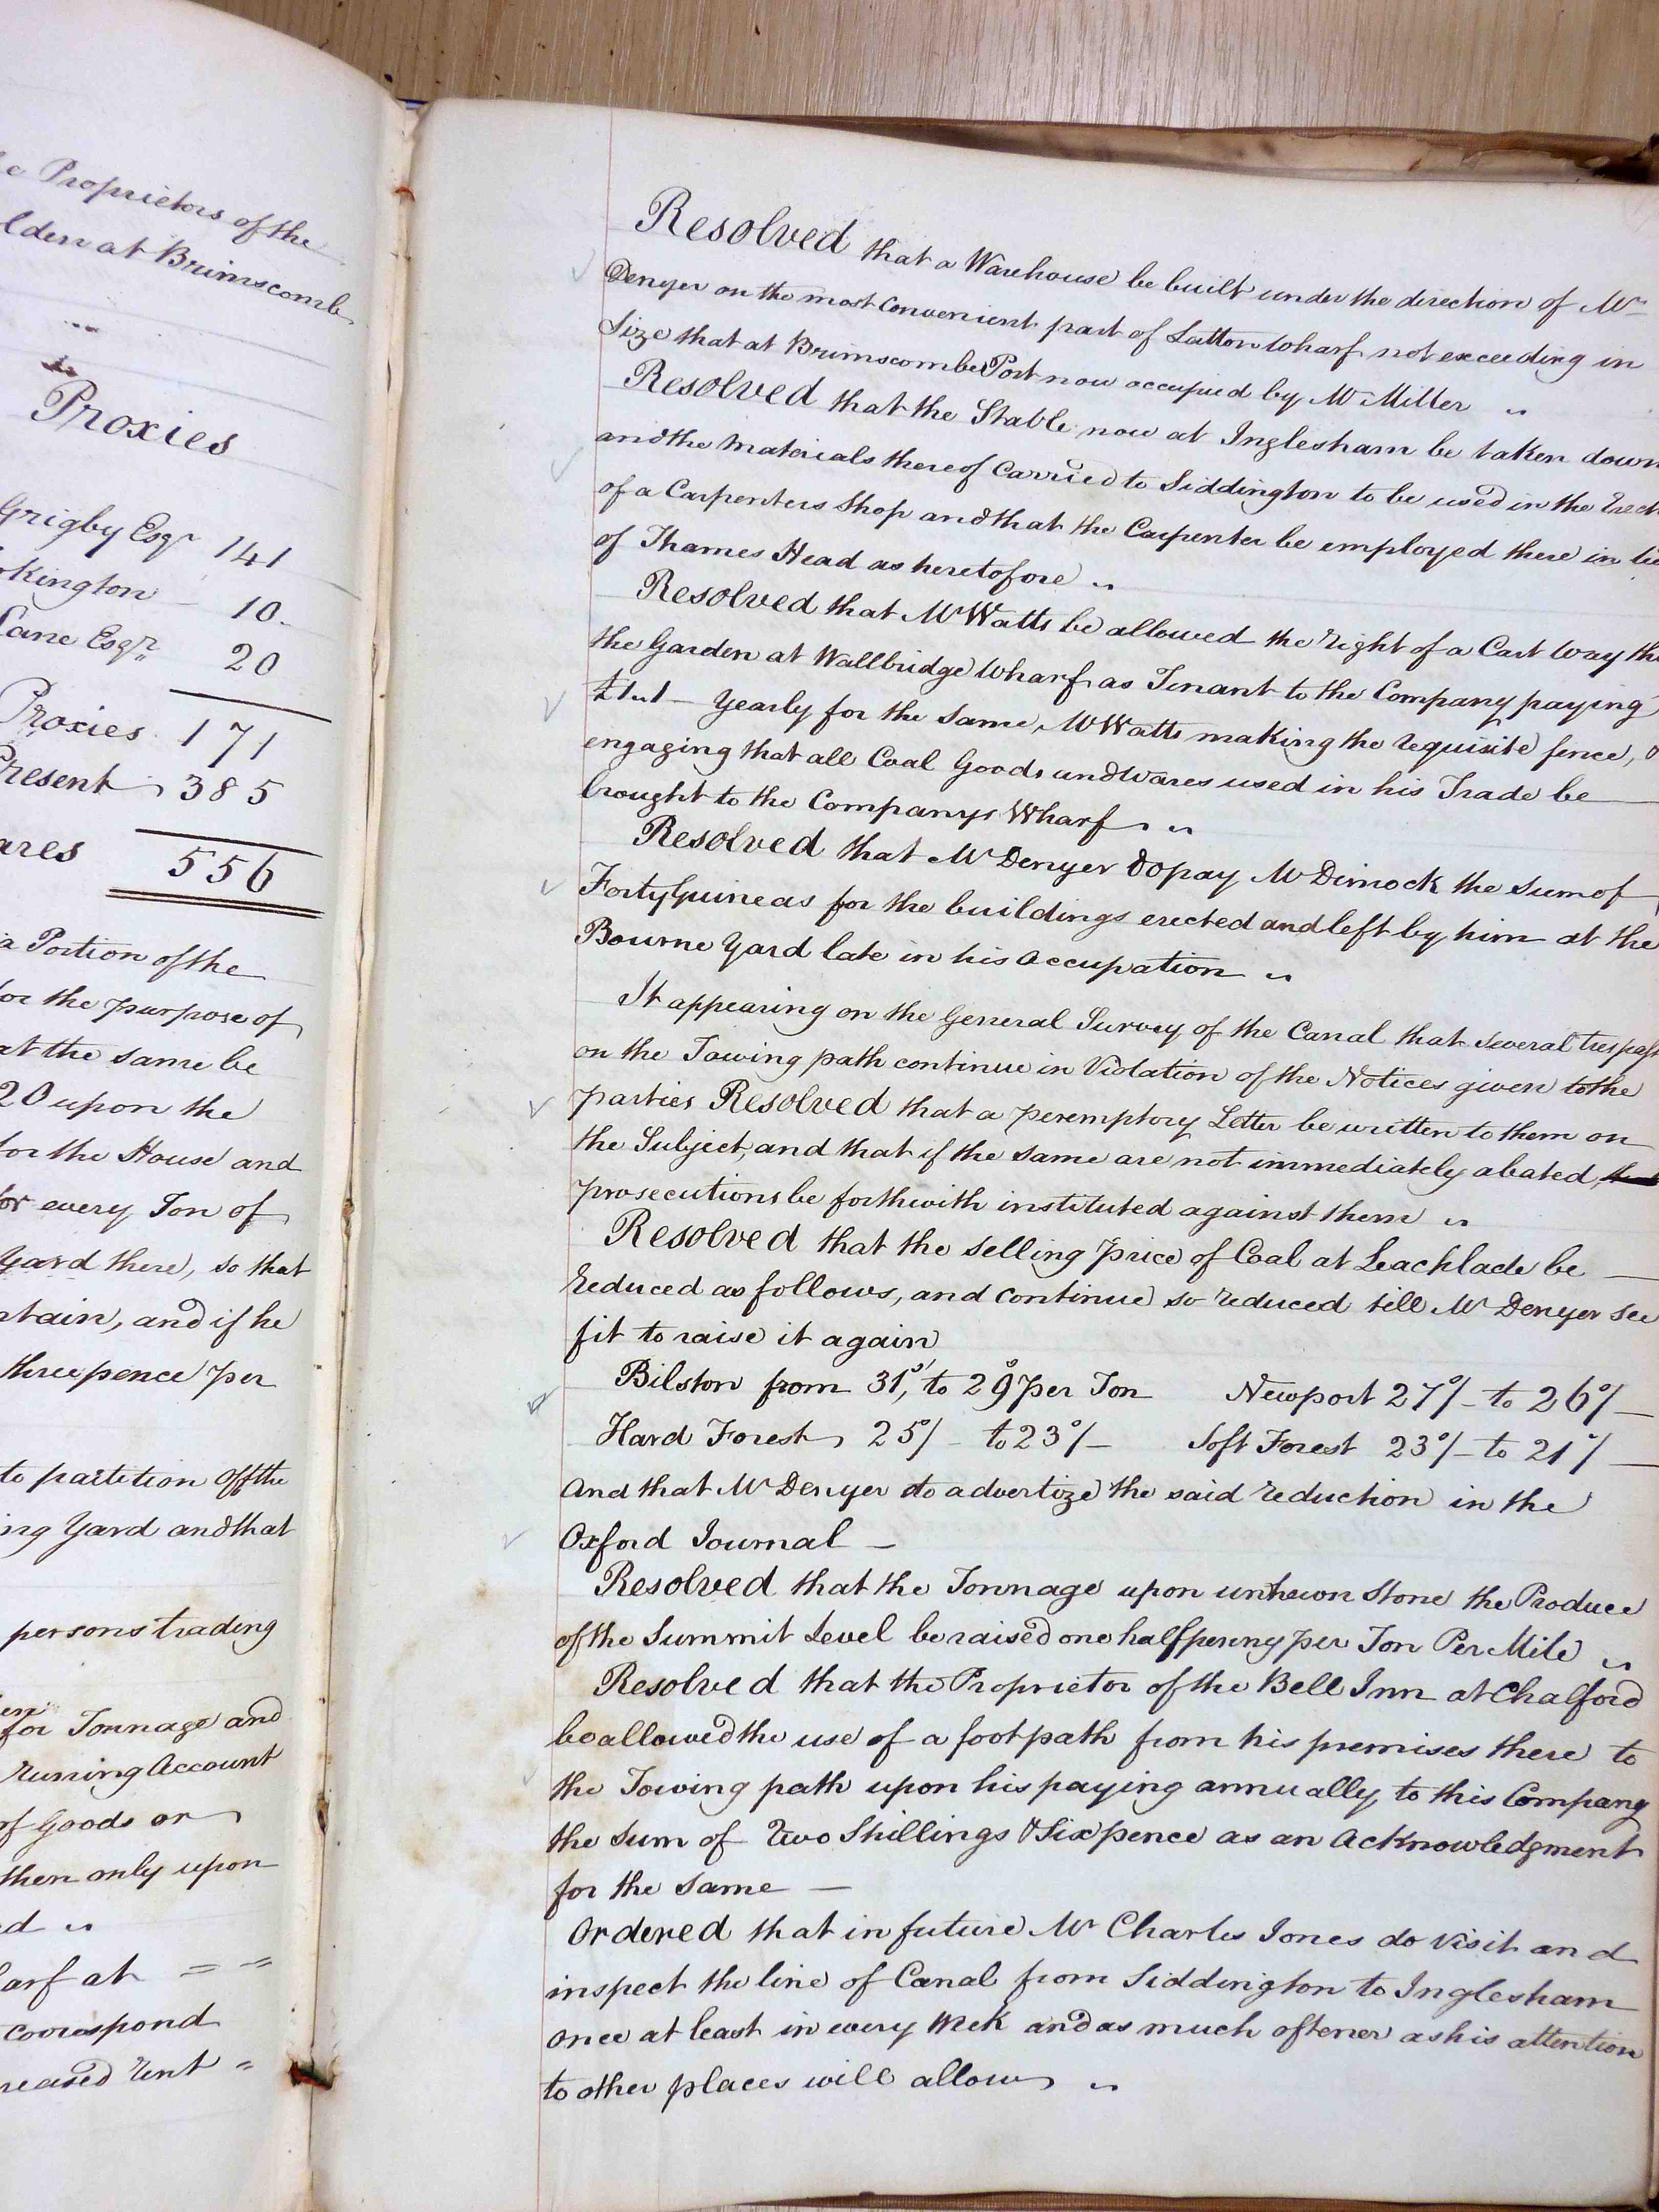 e Proprietors of the
lden at Brimscomb
Proxies
Grigby Esqr 141
kington 10.
Lane Esqr 20
Proxies 171
Present 385
ares 556
a Portion of the
for the purpose of
at the same be
20 upon the
for the House and
for every Ton of
Yard there, so that
rtain, and if he
three pence per
to partition off the
ing Yard and that
persons trading
for Tonnage and
runing Account
of Goods or
then only upon
d
arf at = =
correspond
reased rent =
Resolved that a Warehouse be built under the direction of Mr
Denyer on the most Convenient part of Latton Wharf not exceeding in
Size that at Brimscombe Port now occupied by Mr Miller "
Resolved that the Stable now at Inglesham be taken down
and the Materials thereof Carried to Siddington to be used in the Erect
of a Carpenters Shop and that the Carpenter be employed there in lie
of Thames Head as heretofore "
Resolved that Mr Watts be allowed the right of a Cart Way th
the Garden at Wallbridge Wharf as Tenant to the Company paying
£1"1 – Yearly for the same, Mr Watts making the requisite fence, &
engaging that all Coal Goods and Wares used in his Trade be
brought to the Companys Wharf "
Resolved that Mr Denyer do pay Mr Dimock the Sum of
Forty Guineas for the buildings erected and left by him at the
Bourne Yard late in his Occupation "
It appearing on the General Survey of the Canal that several trespass
on the Towing path continue in Violation of the Notices given to the
parties Resolved that a peremptory Letter be written to them on
the Subject, and that if the same are not immediately abated,
prosecutions be forthwith instituted against them "
Resolved that the selling price of Coal at Leachlade be
reduced as follows, and continue so reduced till Mr Denyer see
fit to raise it again
Bilston from 31s/, to 29s per Ton Newport 27s/- to 26s/-
Hard Forest 25s/- to 23s/- Soft Forest 23s/- to 21s/-
And that Mr Denyer do advertize the said reduction in the
Oxford Journal –
Resolved that the Tonnage upon unhewn Stone the Produce
of the Summit Level be raised one halfpenny per Ton Per Mile "
Resolved that the Proprietor of the Bell Inn at Chalford
be allowed the use of a foot path from his premises there to
the Towing path upon his paying annually to this Company
the Sum of Two Shillings & Sixpence as an Acknowledgment
for the same –
Ordered that in future Mr Charles Jones do visit and
inspect the line of Canal from Siddington to Inglesham
once at least in every Week and as much oftener as his attention
to other places will allow "